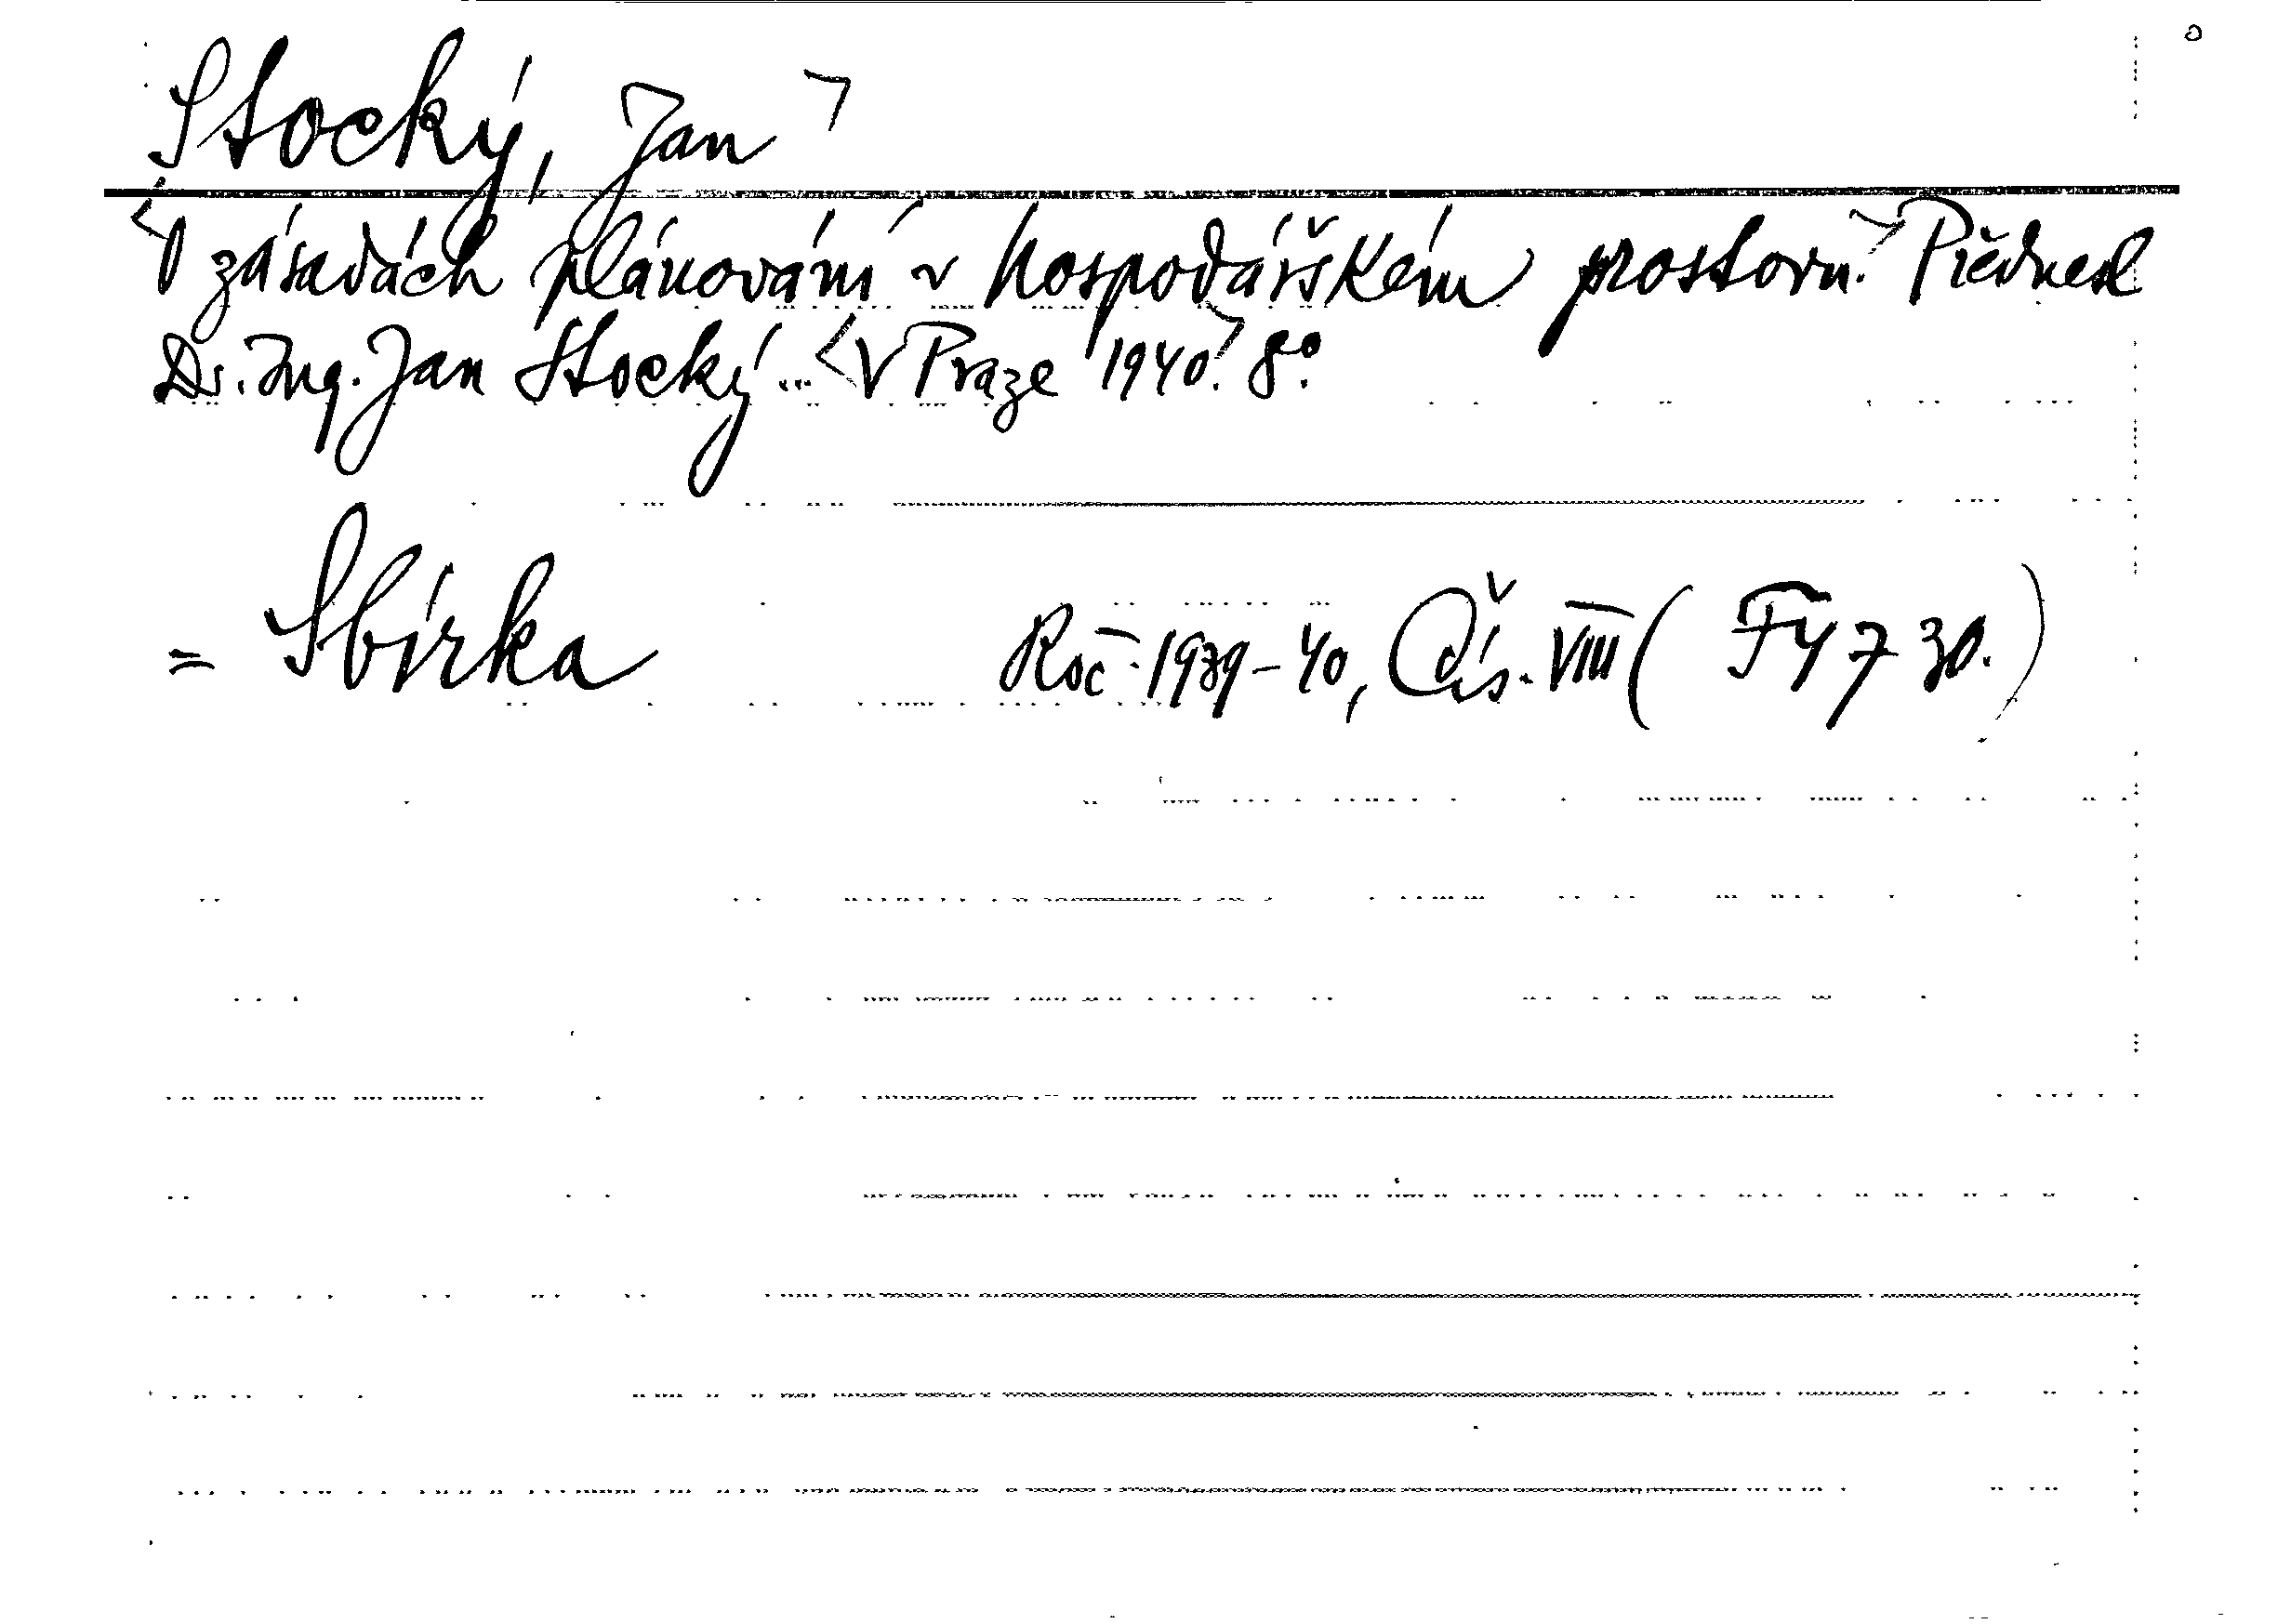 Stocký, Jan
O zásadách plánování v hospodářském prostoru. Přednesl
Dr. Ing. Jan Stocký ... V Praze 1940. 8°.
= Sbírka Roč. 1939-40, Čís. VIII ( F 4730.)